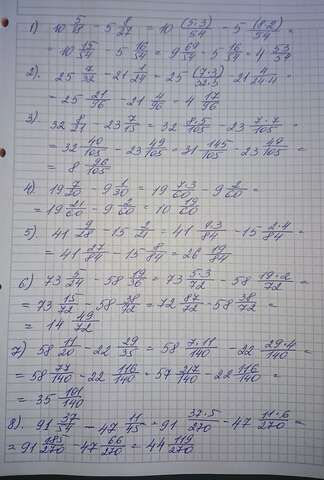 1) 10 5/18 - 5 8/27 = 10 (5·3)/54 - 5 (8·2)/54 =
= 10 15/54 - 5 16/54 = 9 69/54 - 5 16/54 = 4 53/54
2). 25 7/32 - 21 1/24 = 25 (7·3)/32·3 - 21 4/24·4 =
= 25 21/96 - 21 4/96 = 4 17/96
3) 32 8/21 - 23 7/15 = 32 8·5/105 - 23 7·7/105 =
= 32 40/105 - 23 49/105 = 31 145/105 - 23 49/105 =
= 8 96/105
4) 19 7/20 - 9 1/30 = 19 7·3/60 - 9 2/60 =
= 19 21/60 - 9 2/60 = 10 19/60
5). 41 9/28 - 15 2/21 = 41 9·3/84 - 15 2·4/84 =
= 41 27/84 - 15 8/84 = 26 19/84
6) 73 5/24 - 58 19/36 = 73 5·3/72 - 58 19·2/72 =
= 73 15/72 - 58 38/72 = 72 87/72 - 58 38/72 =
= 14 49/72
7) 58 11/20 - 22 29/35 = 58 7·11/140 - 22 29·4/140 =
= 58 77/140 - 22 116/140 = 57 217/140 - 22 116/140 =
= 35 101/140
8). 91 37/54 - 47 11/45 = 91 37·5/270 - 47 11·6/270 =
= 91 185/270 - 47 66/270 = 44 119/270